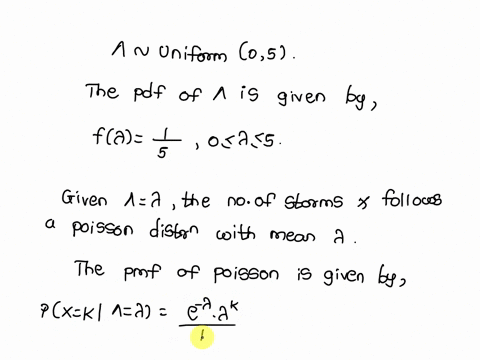 Λ ~ Uniform (0,5).
The pdf of Λ is given by,
f(λ) = 1/5 , 0≤λ≤5.
Given Λ=λ, the no. of storms x follows
a poisson distrn with mean λ.
The pmf of poisson is given by,
P(X=K | Λ=λ) = e^-λ . λ^K /